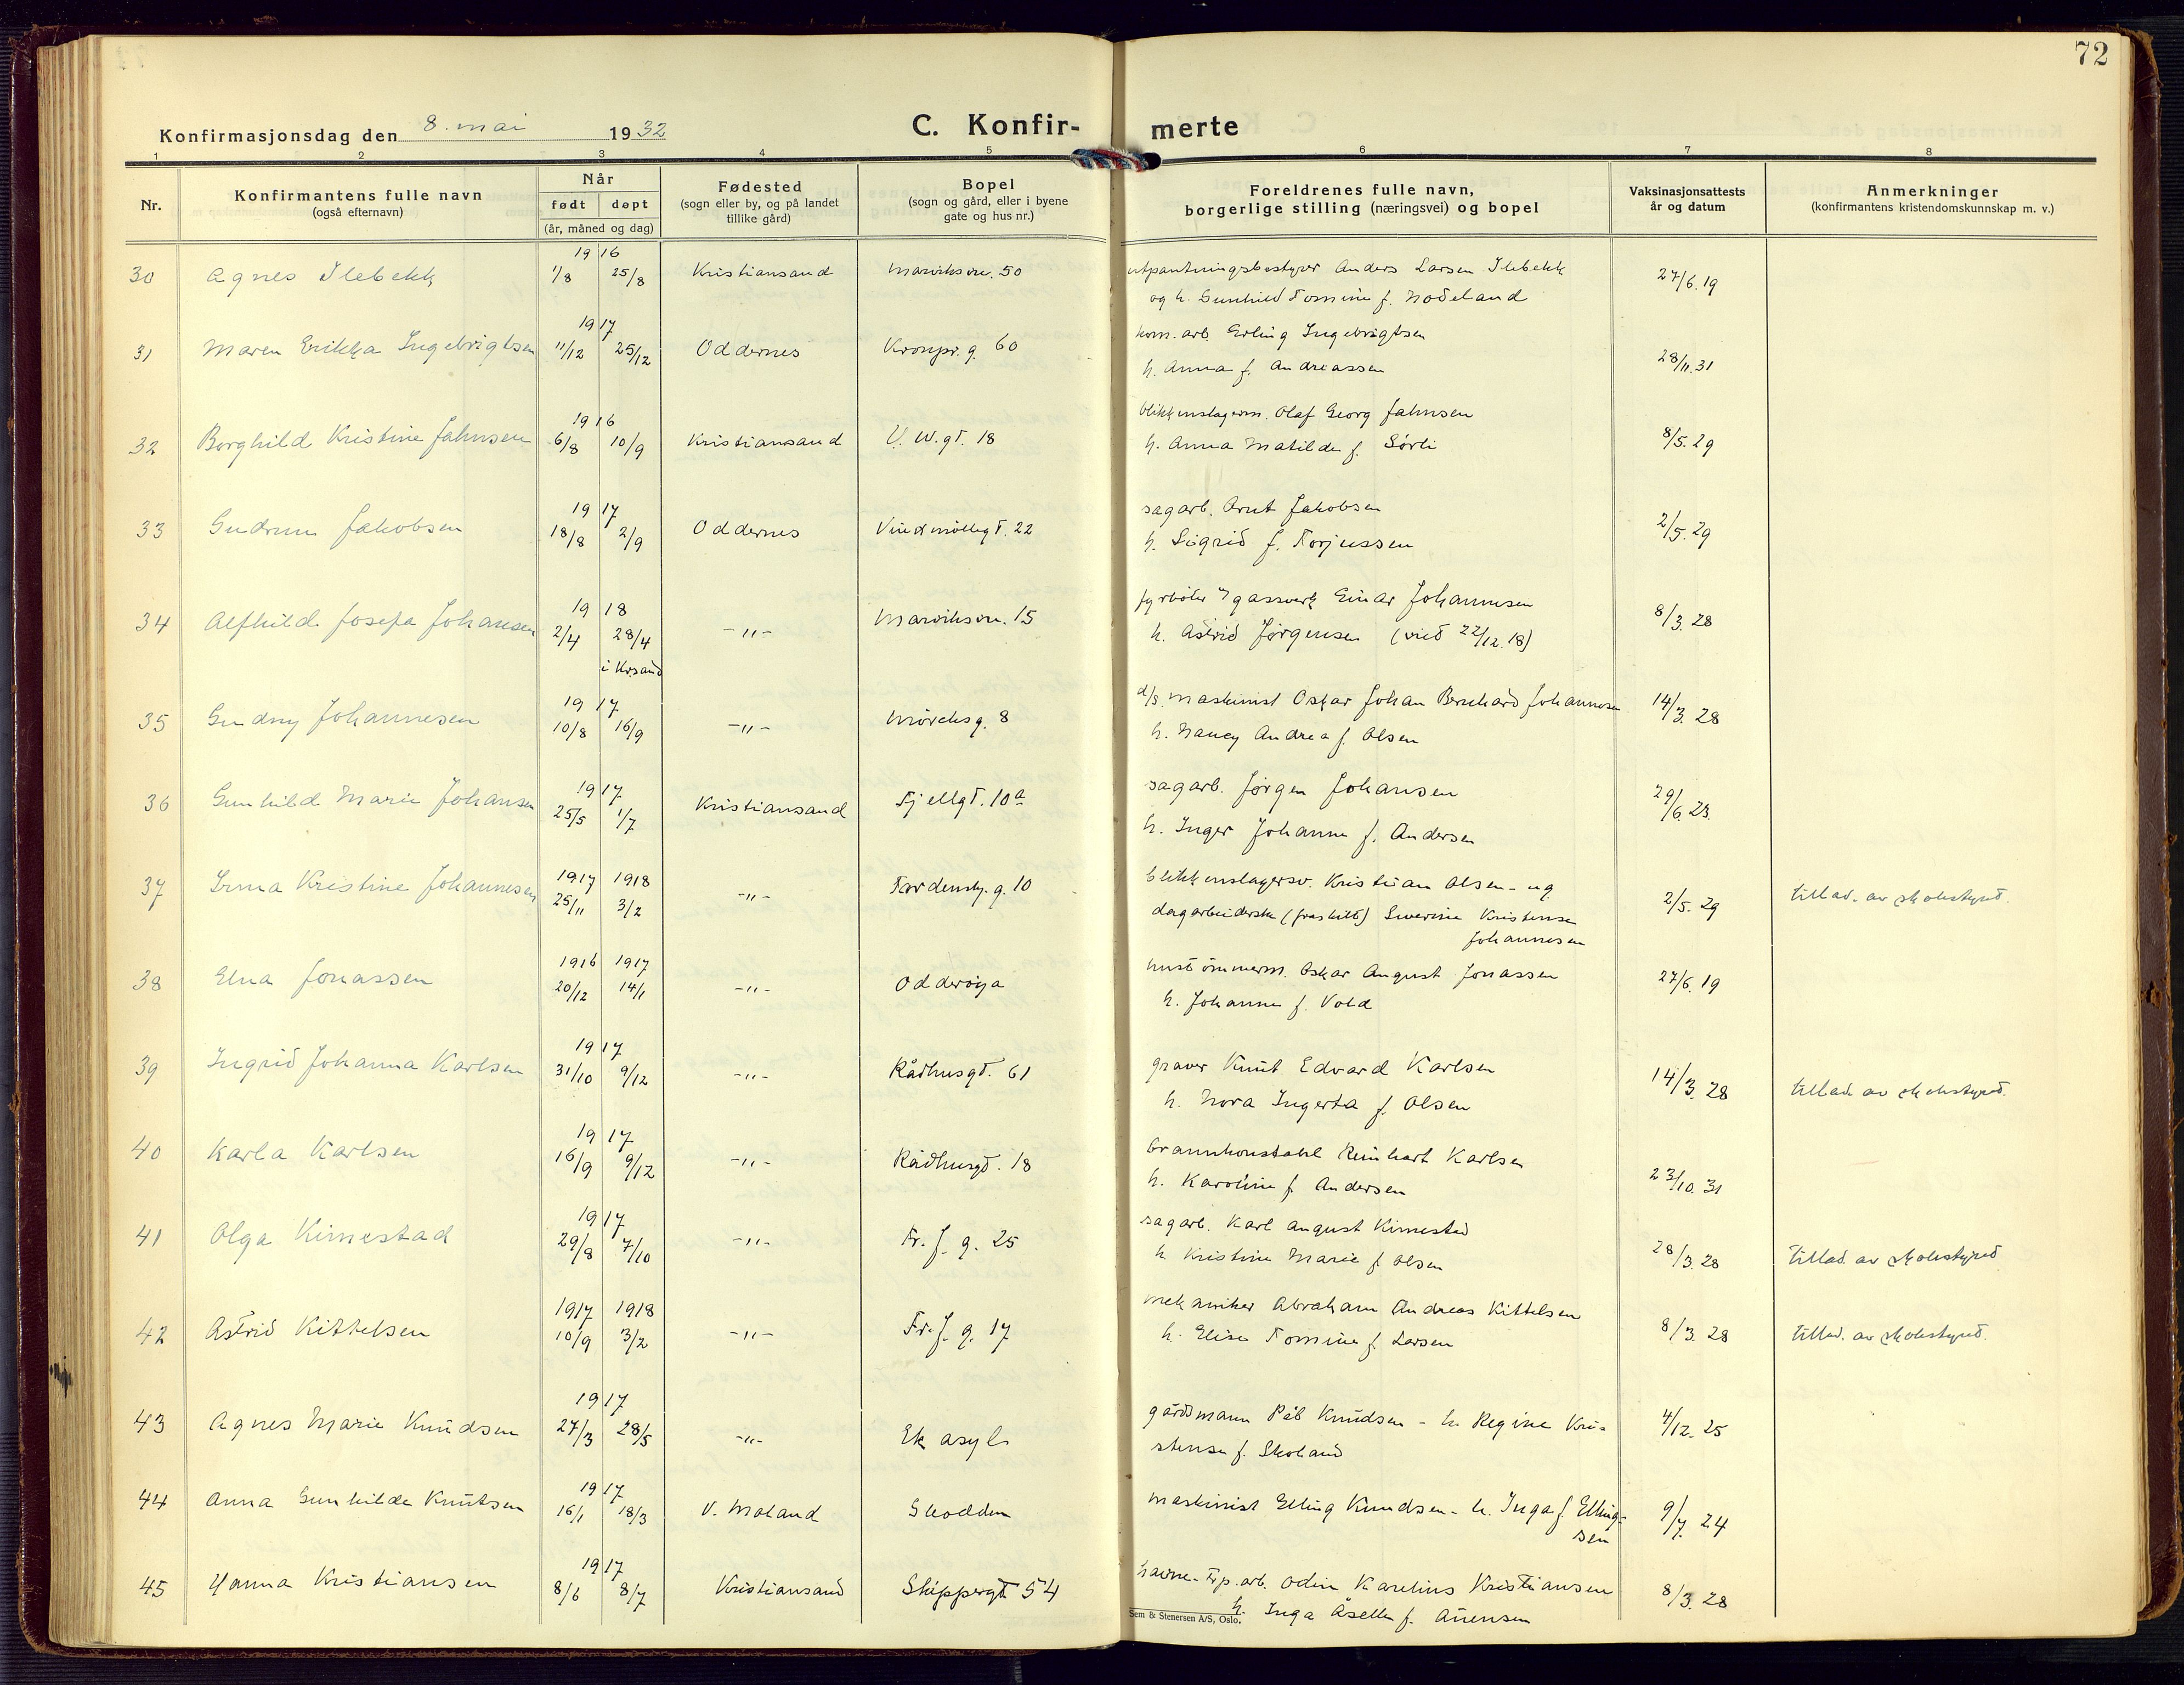 72
Konfirmasjonsdag den 8. mai 1932
C. Konfir- merte
1 2 3 4 5 6 7 8
Nr.
Konfirmantens fulle navn
(også efternavn)
Når
født døpt
(år, måned og dag)
Fødested
(sogn eller by, og på landet
tillike gård)
Bopel
(sogn og gård, eller i byene
gate og hus nr.)
Foreldrenes fulle navn,
borgerlige stilling (næringsvei) og bopel
Vaksinasjonsattests
år og datum
Anmerkninger
(konfirmantens kristendomskunnskap m. v.)
19 16
30 Agnes Ilebekk 1/8 25/8 Kristiansand Marviksvn. 50 utpantningsbestyrer Anders Larsen Ilebekk 27/6. 19
og h. Gunhild Tomine f. Nodeland
19 17
31 Maren Erikka Ingebrigtsen 11/12 25/12 Oddernes Kronpr. g. 60 kom. arb. Erling Ingebrigtsen 28/11. 31
h. Anna f. Andreassen
19 16
32 Borghild Kristine Jahnsen 6/8 10/9 Kristiansand V. W. gt. 18 blikkenslagerm. Olaf Georg Jahnsen 8/5. 29
h. Anna Matilde f. Sørli
19 17
33 Gudrun Jakobsen 18/8 2/9 Oddernes Vindmøllegt. 22 sagarb. Arnt Jakobsen 2/5. 29
h. Sigrid f. Torjussen
19 18
34 Alfhild Josefa Johansen 2/4 28/4 -"- Marviksvn. 15 fyrbøter v/gassverk Einar Johannesen 8/3. 28
i Krsand h. Astrid Jørgensen (vied 22/12. 18)
19 17
35 Gudny Johannesen 10/8 16/9 -"- Mørchsg. 8 d/s. maskinist Oskar Johan Bernhard Johannesen 14/3. 28
h. Nancy Andrea f. Olsen
19 17
36 Gunhild Marie Johansen 25/5 1/7 Kristiansand Fjellgt. 10a sagarb. Jørgen Johansen 29/6. 23.
h. Inger Johanne f. Andersen
1917 1918
37 Irma Kristine Johannesen 25/11 3/2 -"- Tordensk. g. 10 blikkenslagersv. Kristian Olsen - ug. 2/5. 29 tillad. av skolestyret.
dagarbeiderske (fraskilt) Severine Kristense
Johannesen
1916 1917
38 Elna Jonassen 20/12 14/1 -"- Odderøya hustømmerm. Oskar August Jonassen 27/6. 19
h. Johanne f. Vold
19 17
39 Ingrid Johanna Karlsen 31/10 9/12 -"- Rådhusgt. 61 graver Knut Edvard Karlsen 14/3. 28 tillad. av skolestyret.
h. Nora Ingerta f. Olsen
19 17
40 Karla Karlsen 16/9 9/12 -"- Rådhusgt. 18 brannkonstabel Reinhart Karlsen 23/10. 31
h. Karoline f. Andersen
19 17
41 Olga Kimestad 29/8 7/10 -"- Fr. f. g. 25 sagarb. Karl August Kimestad 28/3. 28 Tillad. av skolestyret
h. Kristine Marie f. Olsen
1917 1918
42 Astrid Kittelsen 10/9 3/2 -"- Fr. f. g. 17 mekaniker Abraham Andreas Kittelsen 8/3. 28 tillad. av skolestyret.
h. Elise Tomine f. Larsen
19 17
43 Agnes Marie Knudsen 27/3 28/5 -"- Ek asyl gårdsmann Pål Knudsen - h. Regine Kri- 4/12. 25
stense f. Skoland
19 17
44 Anna Gunhilde Knutsen 16/1 18/3 V. Moland Slodden maskinist Elling Knudsen - h. Inga f. Elling- 9/7. 24
sen
19 17
45 Hanna Kristiansen 8/6 8/7 Kristiansand Skippergt. 54 havne-Frp. arb. Odin Karelius Kristiansen 8/3. 28
h. Inga Åselle f. Auensen
Sem & Stenersen A/S, Oslo.